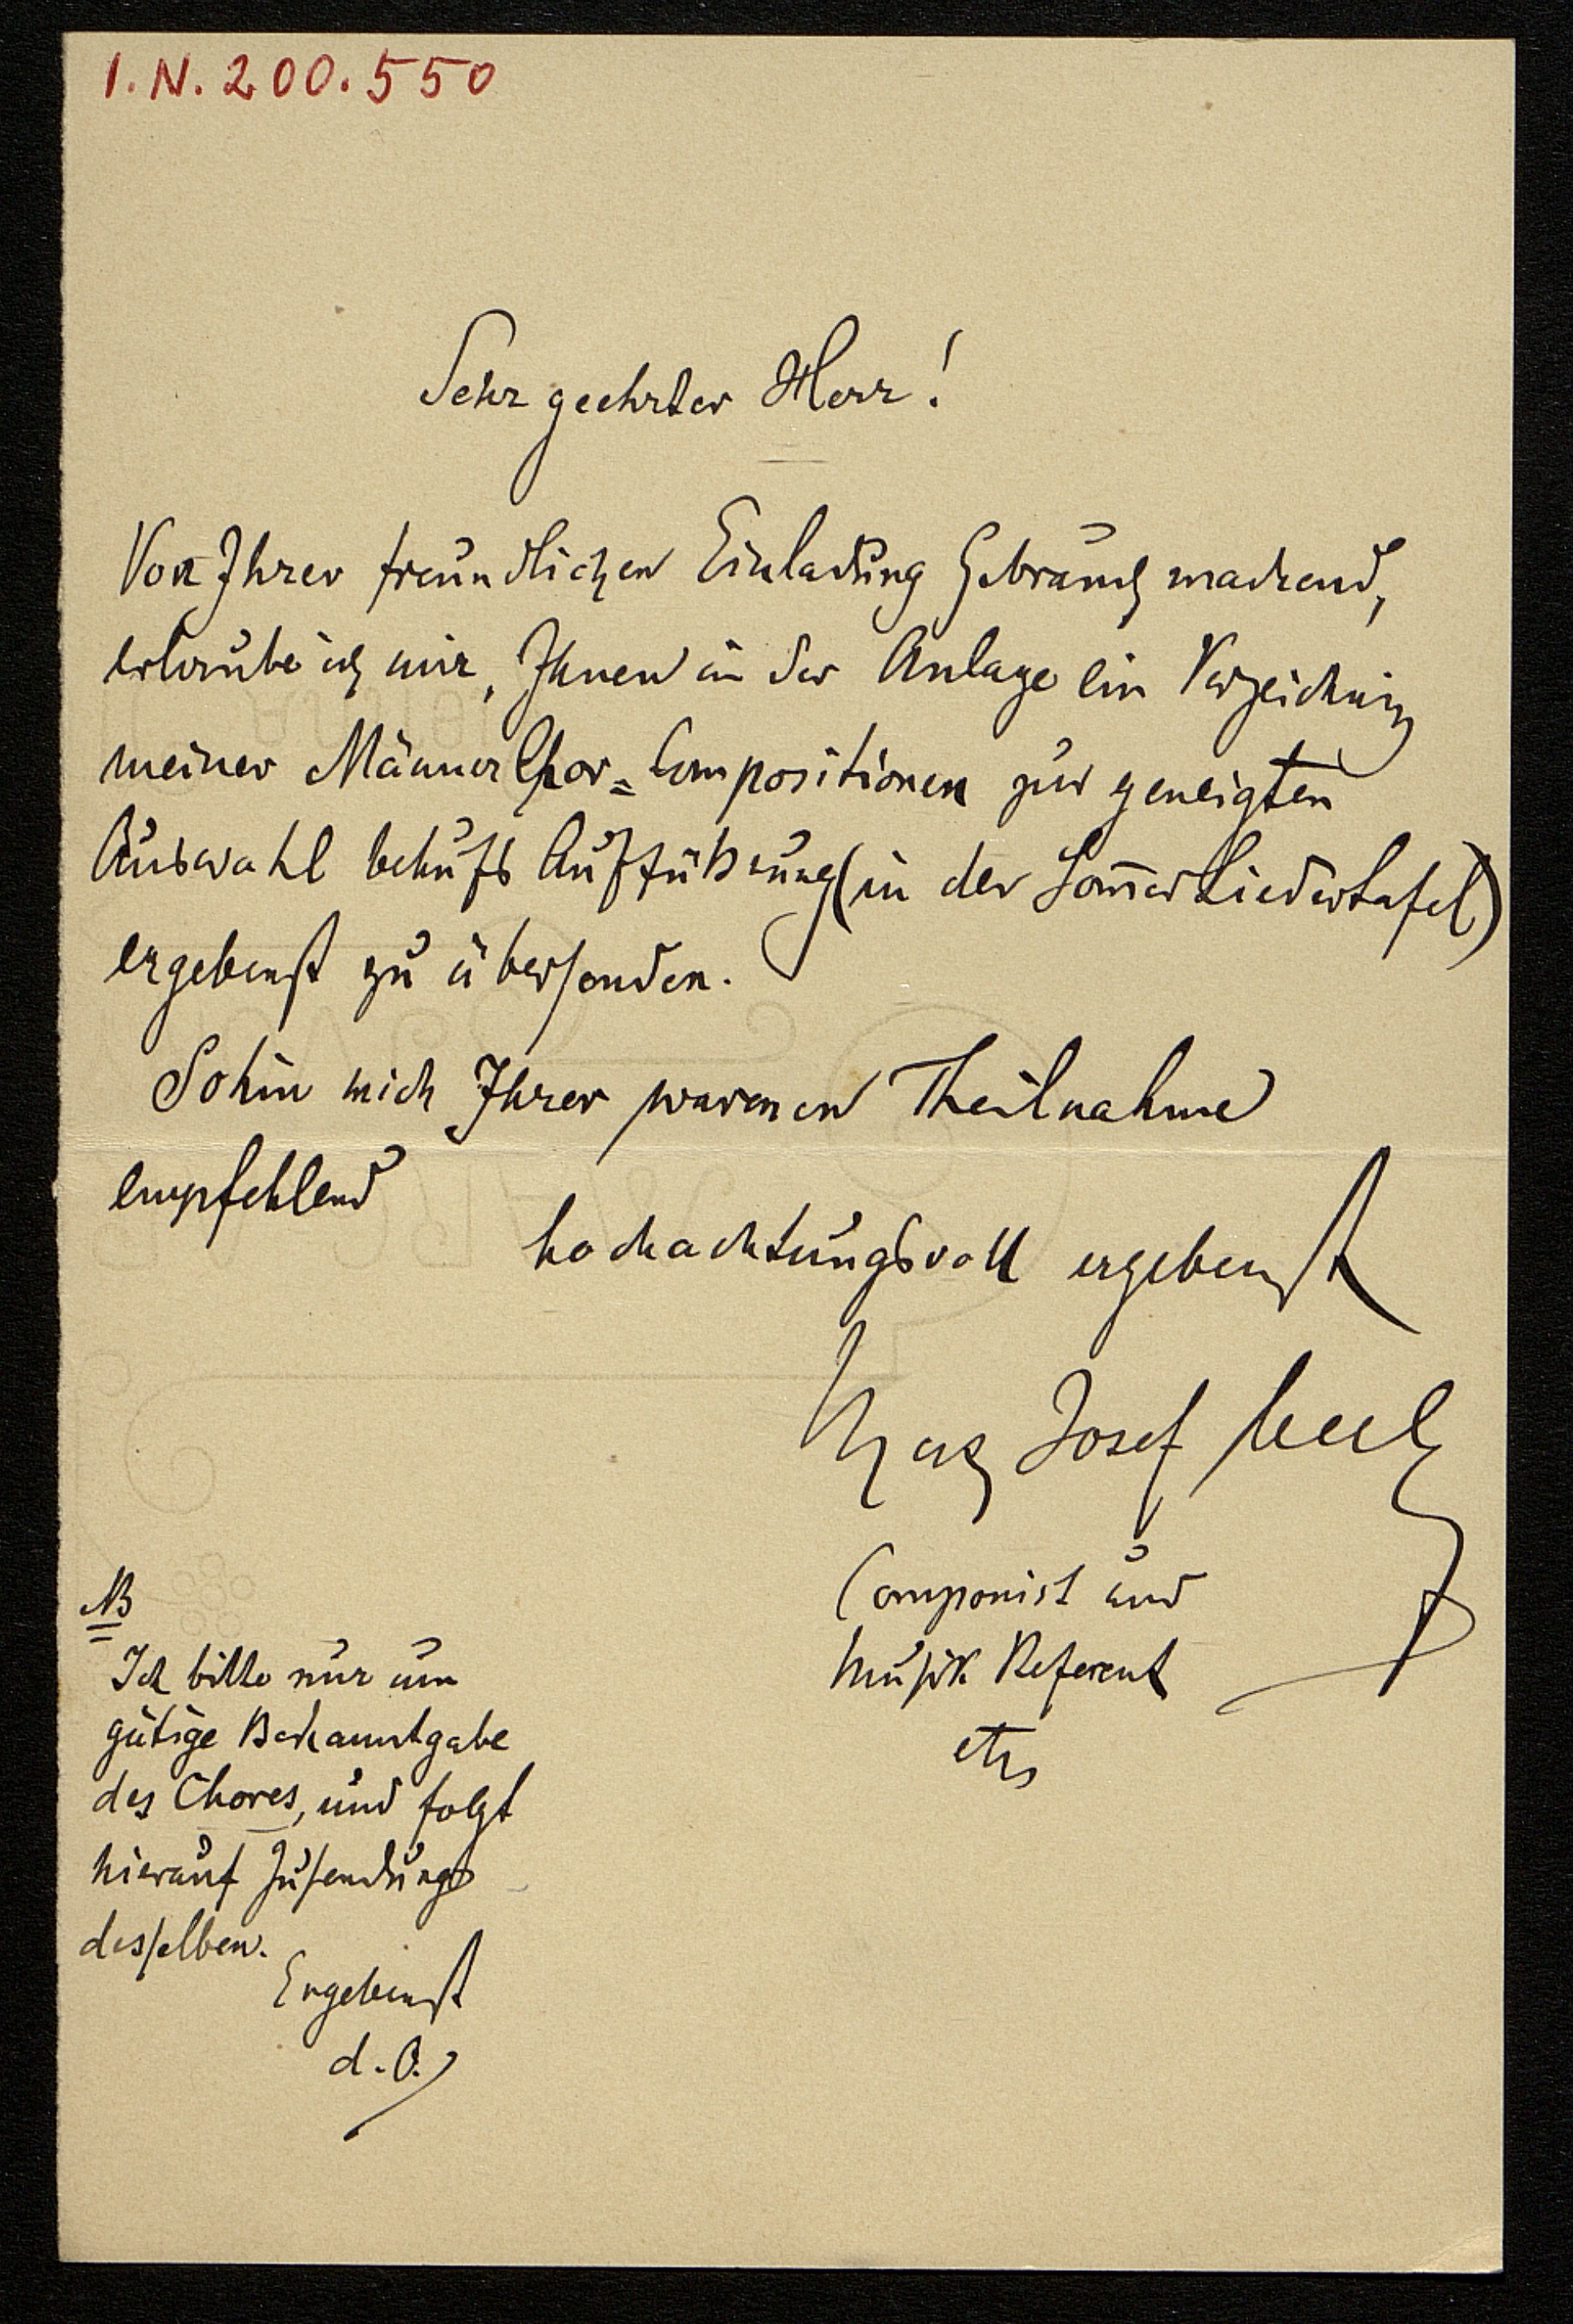 I.N. 200.550
Sehr geehrter Herr!
Von Ihrer freundlichen Einladung Gebrauch machend,
erlaube ich mir, Ihnen in der Anlage ein Verzeichniß
meiner MännerChor=Compositionen zur geneigten
Auswahl behufs Aufführung (in der Som̅erliedertafel)
ergebenst zu übersenden.
Sohin mich Ihrer warmen Theilnahme
empfehlend
hochachtungsvoll ergebenst
Josef Beer
Componist und
Musik Referent
etc
NB
Ich bitte nur um
gütige Bekanntgabe
des Chores, und folgt
hierauf Zusendung
desselben.
Ergebenst
d. O.